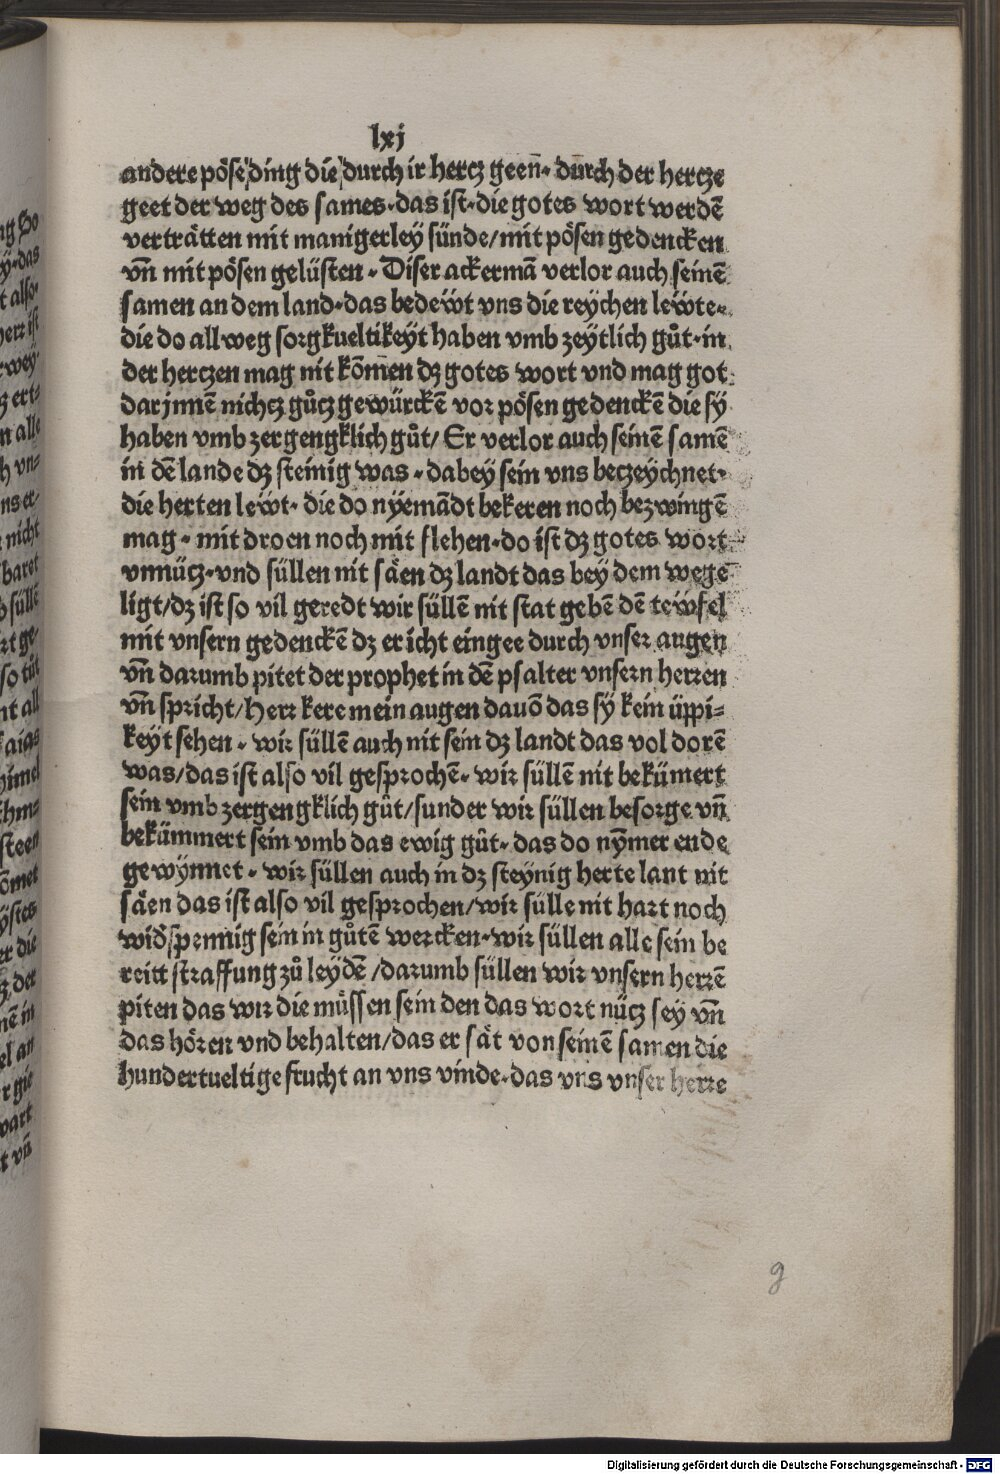 lxj
andere pöse ding die durch ir hercz geen· durch der hercze
geet der weg des sames·das ist·die gotes wort werdē
verträtten mit manigerley sünde/mit pösen gedencken
vn̄ mit pösen gelüsten· Diser ackermā verlor auch seinē
samen an dem land·das bedeẅt vns die reychen leẅte·
die do allweg sorgkueltikeyt haben vmb zeytlich gůt·in
der herczen mag nit kōmen dz gotes wort vnd mag got
darjnnē nichcz gůcz gewürckē vor pösen gedenckē die sÿ
haben vmb zergengklich gůt/ Er verlor auch seinē samē
in dē lande dz steinig was· dabey sein vns beczeychnet·
die herten leẅt· die do nyemādt bekeren noch bezwingē
mag· mit droen noch mit flehen·do ist dz gotes wort
vnnücz·vnd süllen nit säen dz landt das bey dem wege
ligt/dz ist so vil geredt wir süllē nit stat gebē dē teẅfel
mit vnsern gedenckē dz er icht eingee durch vnser augen
vn̄ darumb pitet der prophet in dē psalter vnsern herren
vn̄ spricht/Herr kere mein augen davō das sÿ kein üppi⸗
keyt sehen· wir süllē auch nit sein dz landt das vol dorē
was/das ist also vil gesprochē· wir süllē nit bekümert
sein vmb zergengklich gůt/sunder wir süllen besorge vn̄
bekümmert sein vmb das ewig gůt·das do nÿmer ende
gewynnet· wir süllen auch in dz steynig herte lant nit
säen das ist also vil gesprochen/wir sülle nit hart noch
wid̄spennig sein in gůtē wercken·wir süllen alle sein be
reitt straffung zů leydē/darumb süllen wir vnsern herrē
piten das wir die müssen sein den das wort nücz sey vn̄
das hören vnd behalten/das er sät von seinē samen die
hundertueltige frucht an vns vinde·das vns vnser herre
g
Digitalisierung gefördert durch die Deutsche Forschungsgemeinschaft - DFG